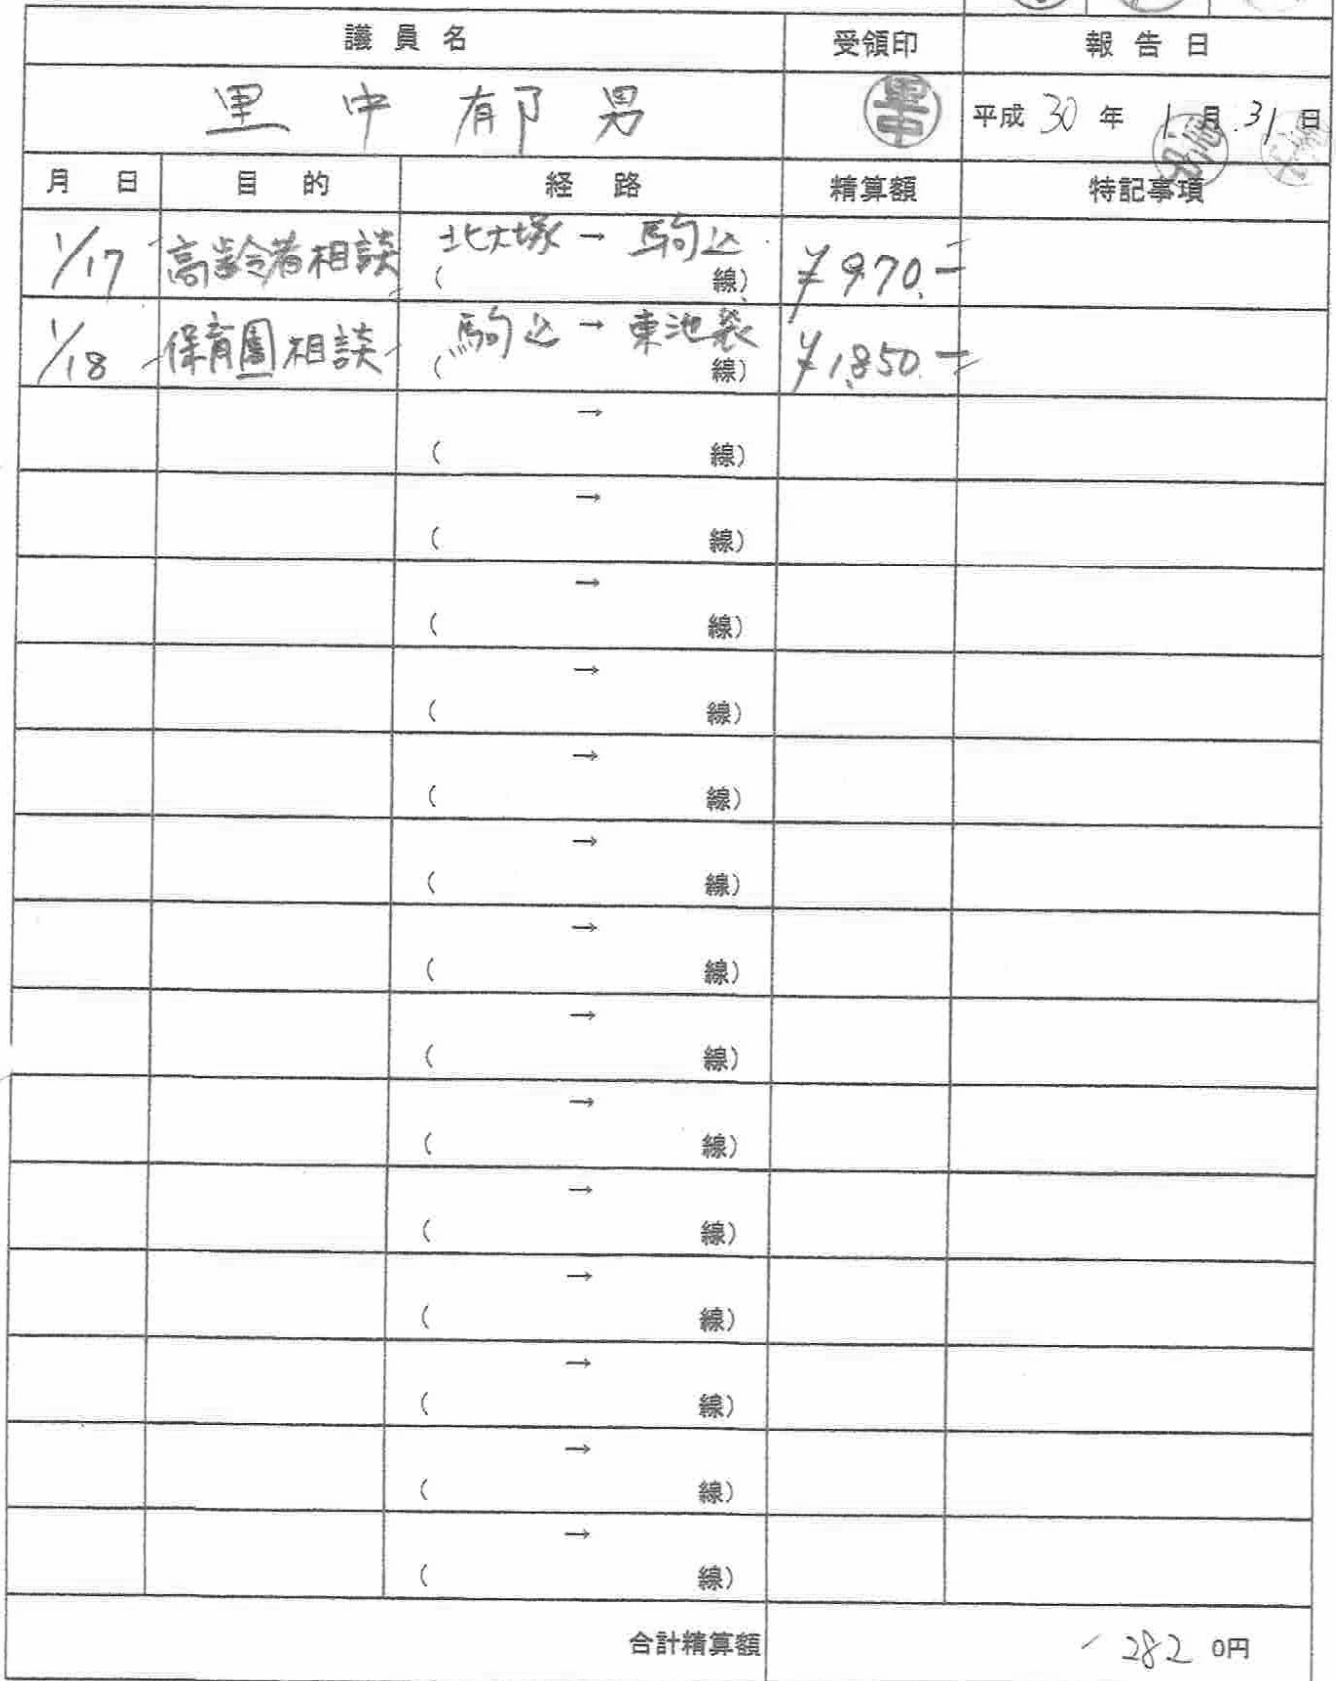 議員名 受領印 報告日
里中郁男 里中 平成30年1月31日
月日 目的 経路 精算額 特記事項
1/17 高齢者相談 北大塚→駒込 ¥970.-
( 線)
1/18 保育園相談 駒込→東池袋 ¥1,850.-
( 線)
→
( 線)
→
( 線)
→
( 線)
→
( 線)
→
( 線)
→
( 線)
→
( 線)
→
( 線)
→
( 線)
→
( 線)
→
( 線)
→
( 線)
→
( 線)
→
( 線)
合計精算額 2820円